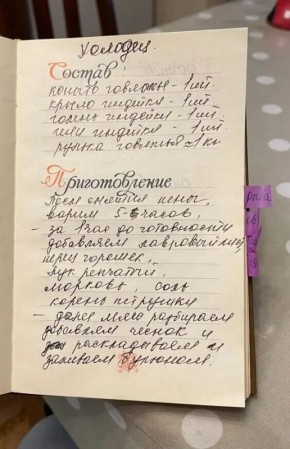 Холодец.
Состав:
копыто говяжье - 1шт.
крыло индейки - 1шт.
голень индейки - 1шт.
шея индейки - 1шт.
рулька говяжья ~1кг
Приготовление
После снятия пены,
варим 5-6 часов,
- за 1 час до готовности
добавляем лавровый лист,
перец горошек,
лук репчатый,
морковь, соль
корень петрушки
- далее мясо разбираем
добавляем чеснок и
раскладываем и
заливаем бульоном.